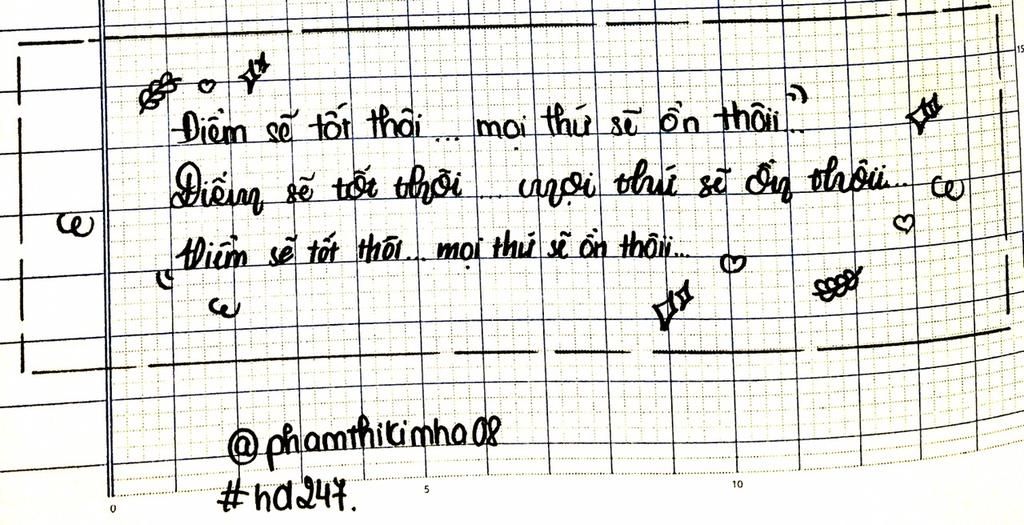 Điểm sẽ tốt thôi... mọi thứ sẽ ổn thôii...
Điểm sẽ tốt thôi... mọi thứ sẽ ổn thôii...
Điểm sẽ tốt thôi... mọi thứ sẽ ổn thôii...
@phamthikimha08
#hd247.
0 5 10 15